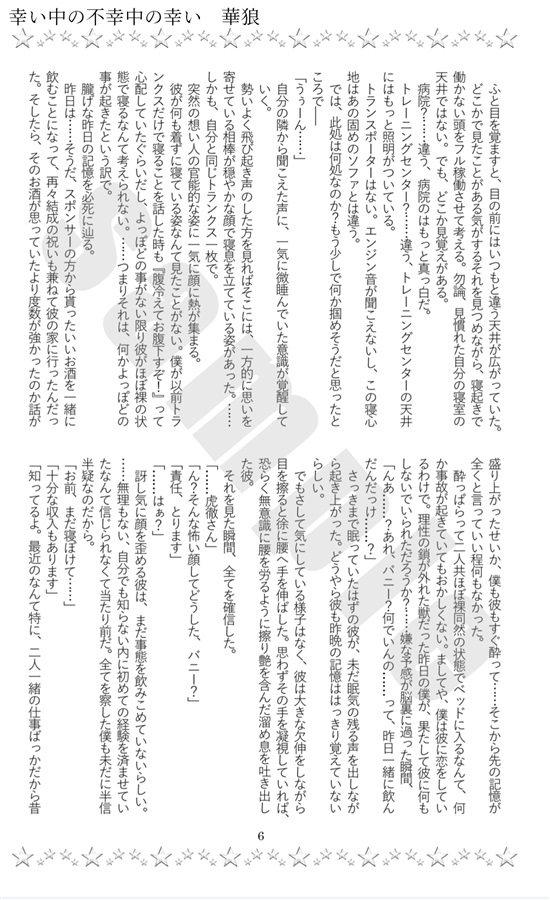 幸い中の不幸中の幸い　華狼
ふと目を覚ますと、目の前にはいつもと違う天井が広がっていた。
どこかで見たことがある気がするそれを見つめながら、寝起きで
働かない頭をフル稼働させて考える。勿論、見慣れた自分の寝室の
天井ではない。でも、どこか見覚えがある。
病院？……違う、病院のはもっと真っ白だ。
トレーニングセンター？……違う、トレーニングセンターの天井
にはもっと照明がついている。
トランスポーターはない。エンジン音が聞こえないし、この寝心
地はあの固めのソファとは違う。
では、此処は何処なのか？もう少しで何か掴めそうだと思ったと
ころで――
「うぅーん……」
自分の隣から聞こえた声に、一気に微睡んでいた意識が覚醒して
いく。
勢いよく飛び起き声のした方を見ればそこには、一方的に思いを
寄せている相棒が穏やかな顔で寝息を立てている姿があった。……
しかも、自分と同じトランクス一枚で。
突然の想い人の官能的な姿に一気に顔に熱が集まる。
彼が何も着ずに寝ている姿なんて見たことがない。僕が以前トラ
ンクスだけで寝ることを話した時も『腹冷えてお腹下すぞ！』って
心配していたぐらいだし、よっぽどの事がない限り彼がほぼ裸の状
態で寝るなんて考えられない。……つまりそれは、何かよっぽどの
事が起きたという訳で。
朧げな昨日の記憶を必死に辿る。
昨日は……そうだ、スポンサーの方から貰ったいいお酒を一緒に
飲むことになって、再々結成の祝いも兼ねて彼の家に行ったんだっ
た。そしたら、そのお酒が思っていたより度数が強かったのか話が
盛り上がったせいか、僕も彼もすぐ酔って……そこから先の記憶が
全くと言っていい程何もなかった。
酔っぱらって二人共ほぼ裸同然の状態でベッドに入るなんて、何
か事故が起きていてもおかしくない。ましてや、僕は彼に恋をしてい
るわけで。理性の鎖が外れた獣だった昨日の僕が、果たして彼に何も
しないでいられただろうか？……嫌な予感が脳裏に過った瞬間、
「んあ……？あれ、バニー？何でいんの……って、昨日一緒に飲ん
だんだっけ……？」
さっきまで眠っていたはずの彼が、未だ眠気の残る声を出しなが
ら起き上がった。どうやら彼も昨晩の記憶ははっきり覚えていない
らしい。
でもさして気にしている様子はなく、彼は大きな欠伸をしながら
目を擦ると徐に腰へ手を伸ばした。思わずその手を凝視していれば、
恐らく無意識に腰を労るように擦り艶を含んだ溜め息を吐き出し
た彼。
それを見た瞬間、全てを確信した。
「……虎徹さん」
「ん？そんな怖い顔してどうした、バニー？」
「責任、とります」
「……はぁ？」
訝し気に顔を歪める彼は、まだ事態を飲みこめていないらしい。
……無理もない、自分でも知らない内に初めての経験を済ませてい
たなんて信じられなくて当たり前だ。全てを察した僕も未だに半信
半疑なのだから。
「お前、まだ寝ぼけて……」
「十分な収入もあります」
「知ってるよ。最近のなんて特に、二人一緒の仕事ばっかだから昔
6
sample